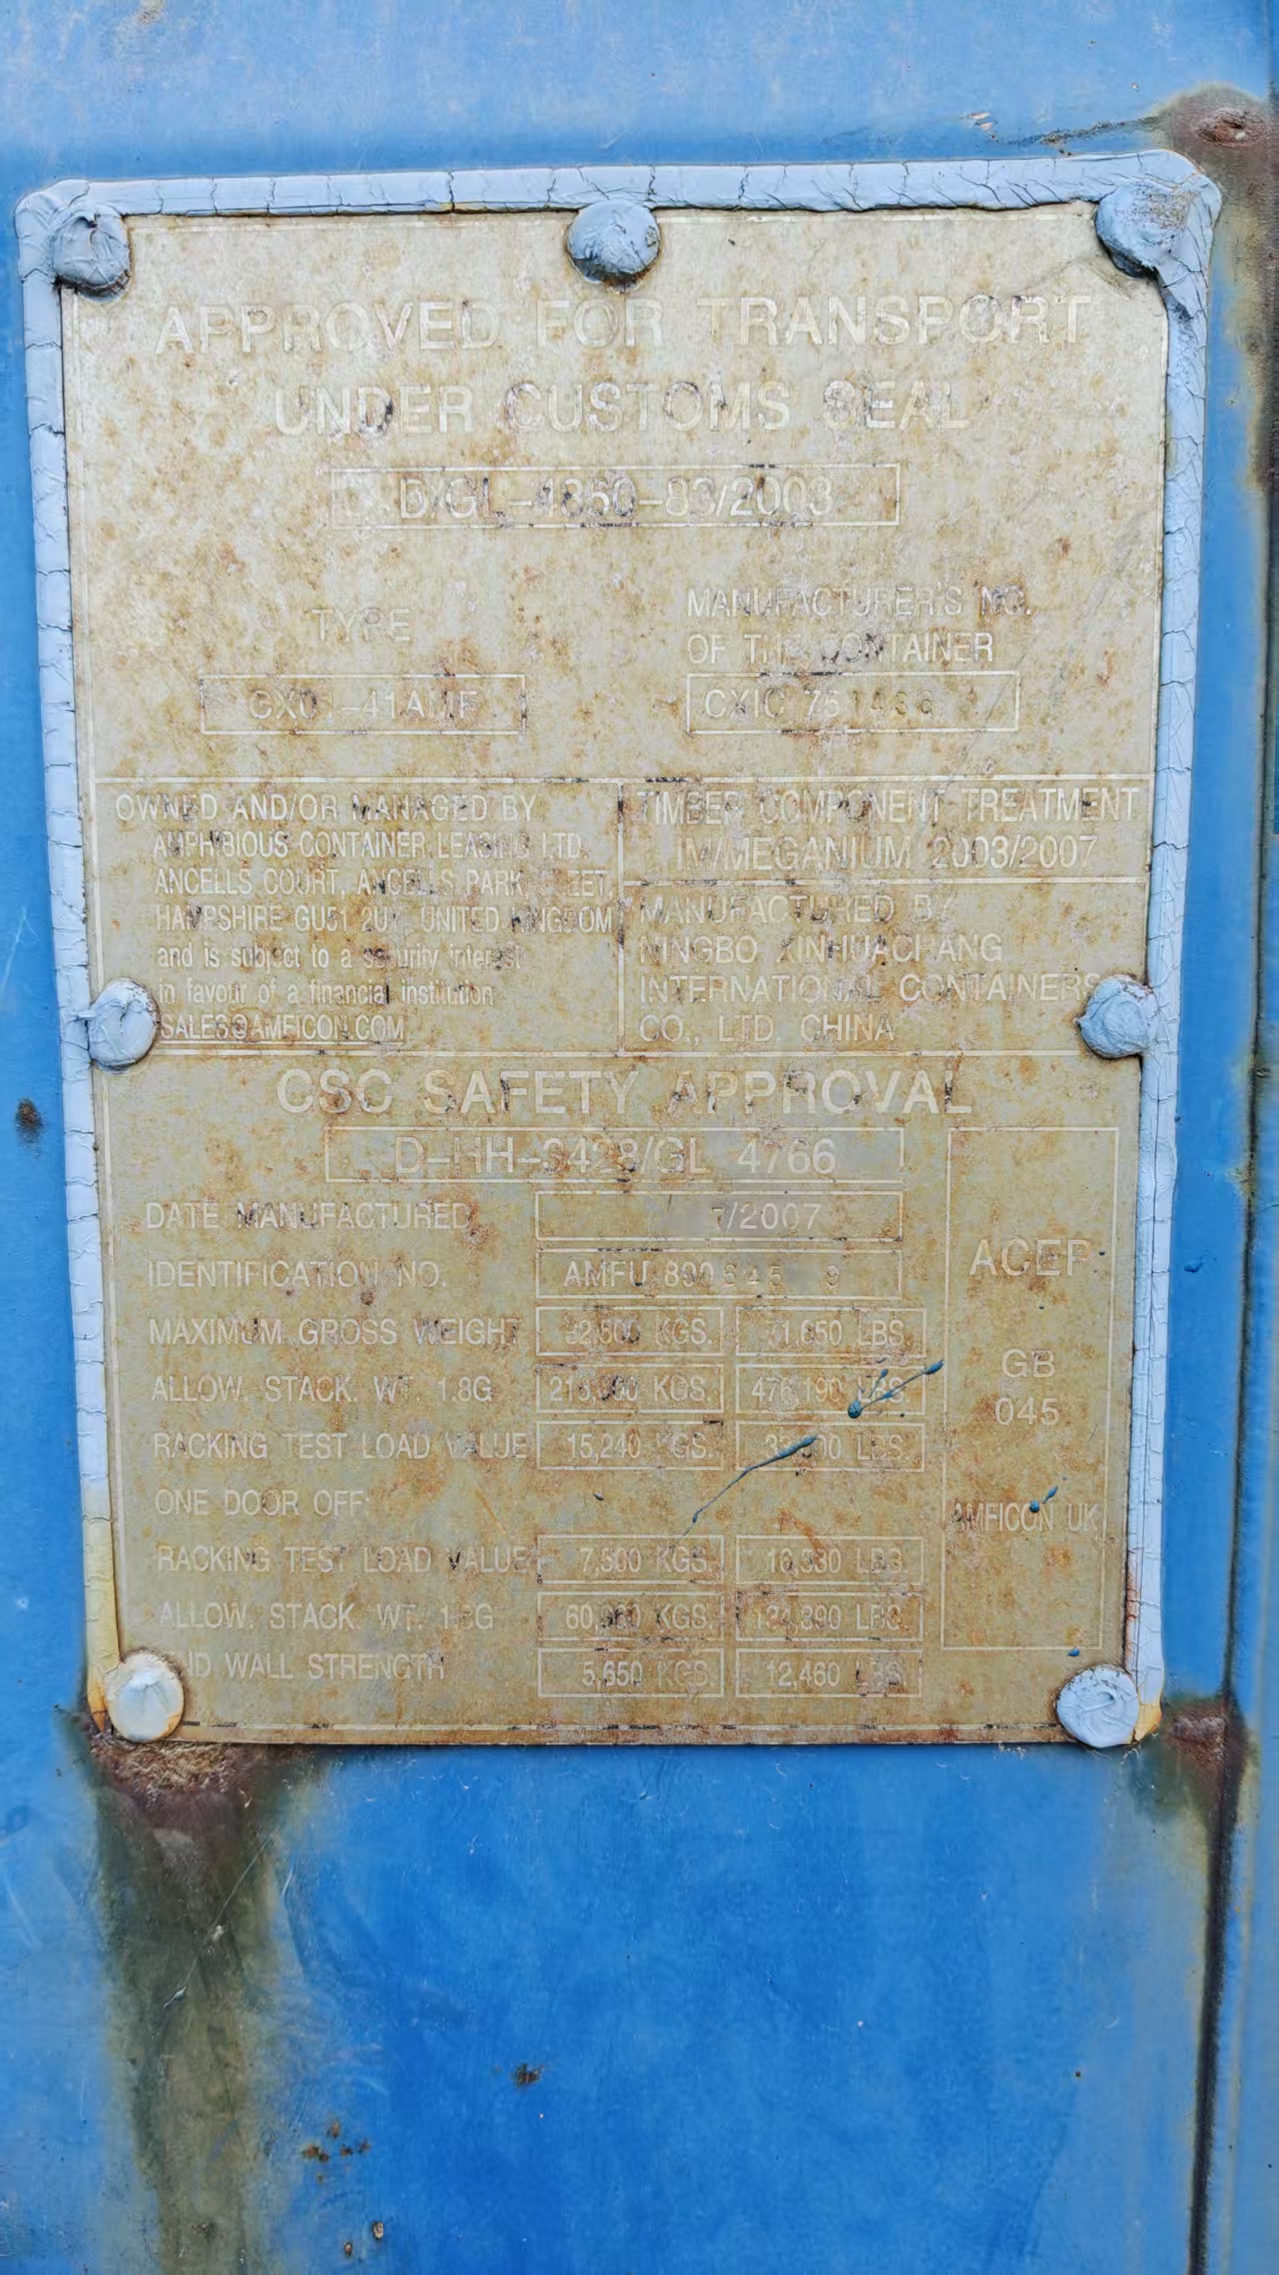 APPROVED FOR TRANSPORT
UNDER CUSTOMS SEAL
D/GL-4860-83/2003
TYPE
MANUFACTURER'S NO.
OF THE CONTAINER
CX01-41AMF
CXIC 751436
OWNED AND/OR MANAGED BY
AMPHIBIOUS CONTAINER LEASING LTD.
ANCELLS COURT, ANCELLS PARK, FLEET,
HAMPSHIRE GU51 UNITED KINGDOM
and is subject to a security interest
in favour of a financial institution
SALES@AMFICON.COM
TIMBER COMPONENT TREATMENT
IM/MEGANIUM 2003/2007
MANUFACTURED BY
NINGBO XINHUACHANG
INTERNATIONAL CONTAINERS
CO., LTD. CHINA
CSC SAFETY APPROVAL
D-HH-3428/GL 4766
DATE MANUFACTURED 7/2007
IDENTIFICATION NO. AMFU
MAXIMUM GROSS WEIGHT 32,500 KGS. 71,650 LBS.
ALLOW. STACK. WT. 1.8G KGS. 476,190 LBS.
RACKING TEST LOAD VALUE 15,240 KGS. LBS.
ONE DOOR OFF:
RACKING TEST LOAD VALUE 7,500 KGS. LBS.
ALLOW. STACK. WT. KGS. LBS.
WALL STRENGTH 5,650 KGS. 12,460 LBS.
ACEP
GB
045
AMFICON UK